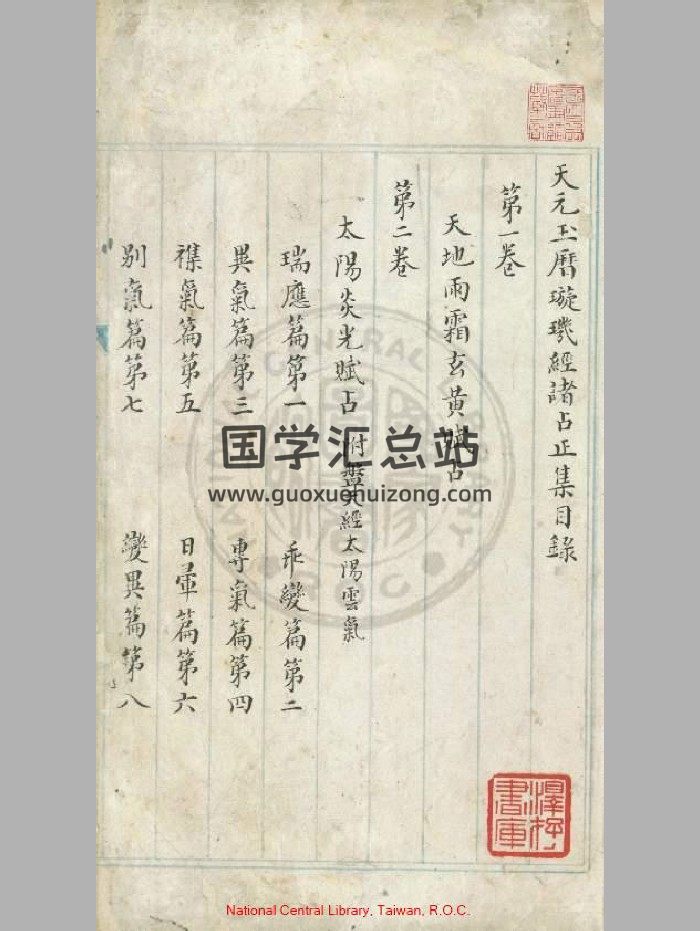 天元玉曆璇璣經諸占正集目錄
第一卷
天地雨霜玄黃賦占
第二卷
太陽炎光賦占 附盤天經太陽雲氣
瑞應篇第一 乖變篇第二
異氣篇第三 專氣篇第四
襍氣篇第五 日暈篇第六
別氣篇第七 變異篇第八
澤存書庫
国学汇总站
www.guoxuehuizong.com
National Central Library, Taiwan, R.O.C.